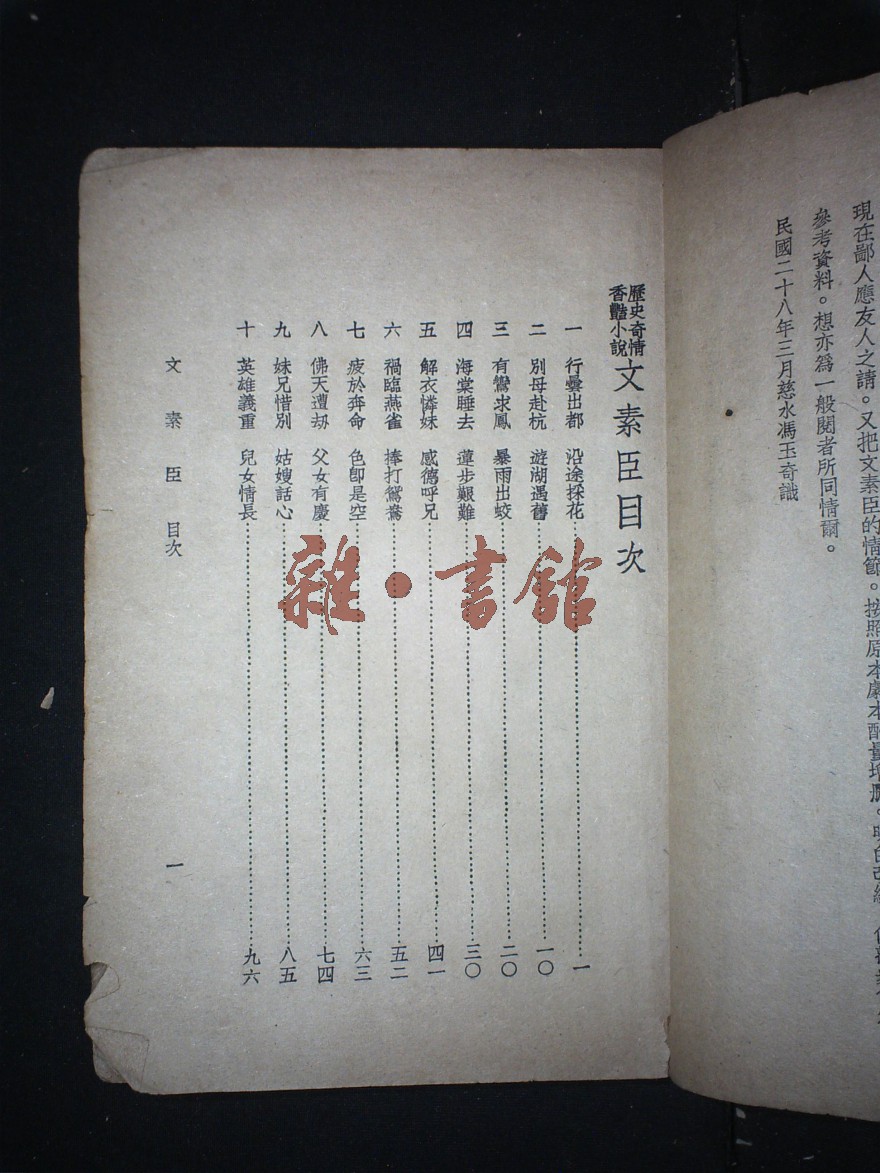 現在鄙人應友人之請。又把文素臣的情節。按照原本劇本酌量增
參考資料。想亦爲一般閱者所同情爾。
民國二十八年三月慈水馮玉奇識
歷史奇情
香艷小說
文素臣目次
一 行曇出都 沿途採花 一
二 別母赴杭 遊湖遇舊 一〇
三 有鸞求鳳 暴雨出蛟 二〇
四 海棠睡去 蓮步艱難 三〇
五 解衣憐妹 感德呼兄 四一
六 禍臨燕雀 捧打鴛鴦 五二
七 疲於奔命 色卽是空 六三
八 佛天遭刧 父女有慶 七四
九 妹兄惜別 姑嫂話心 八五
十 英雄義重 兒女情長 九六
文素臣 目次 一
雜·書館